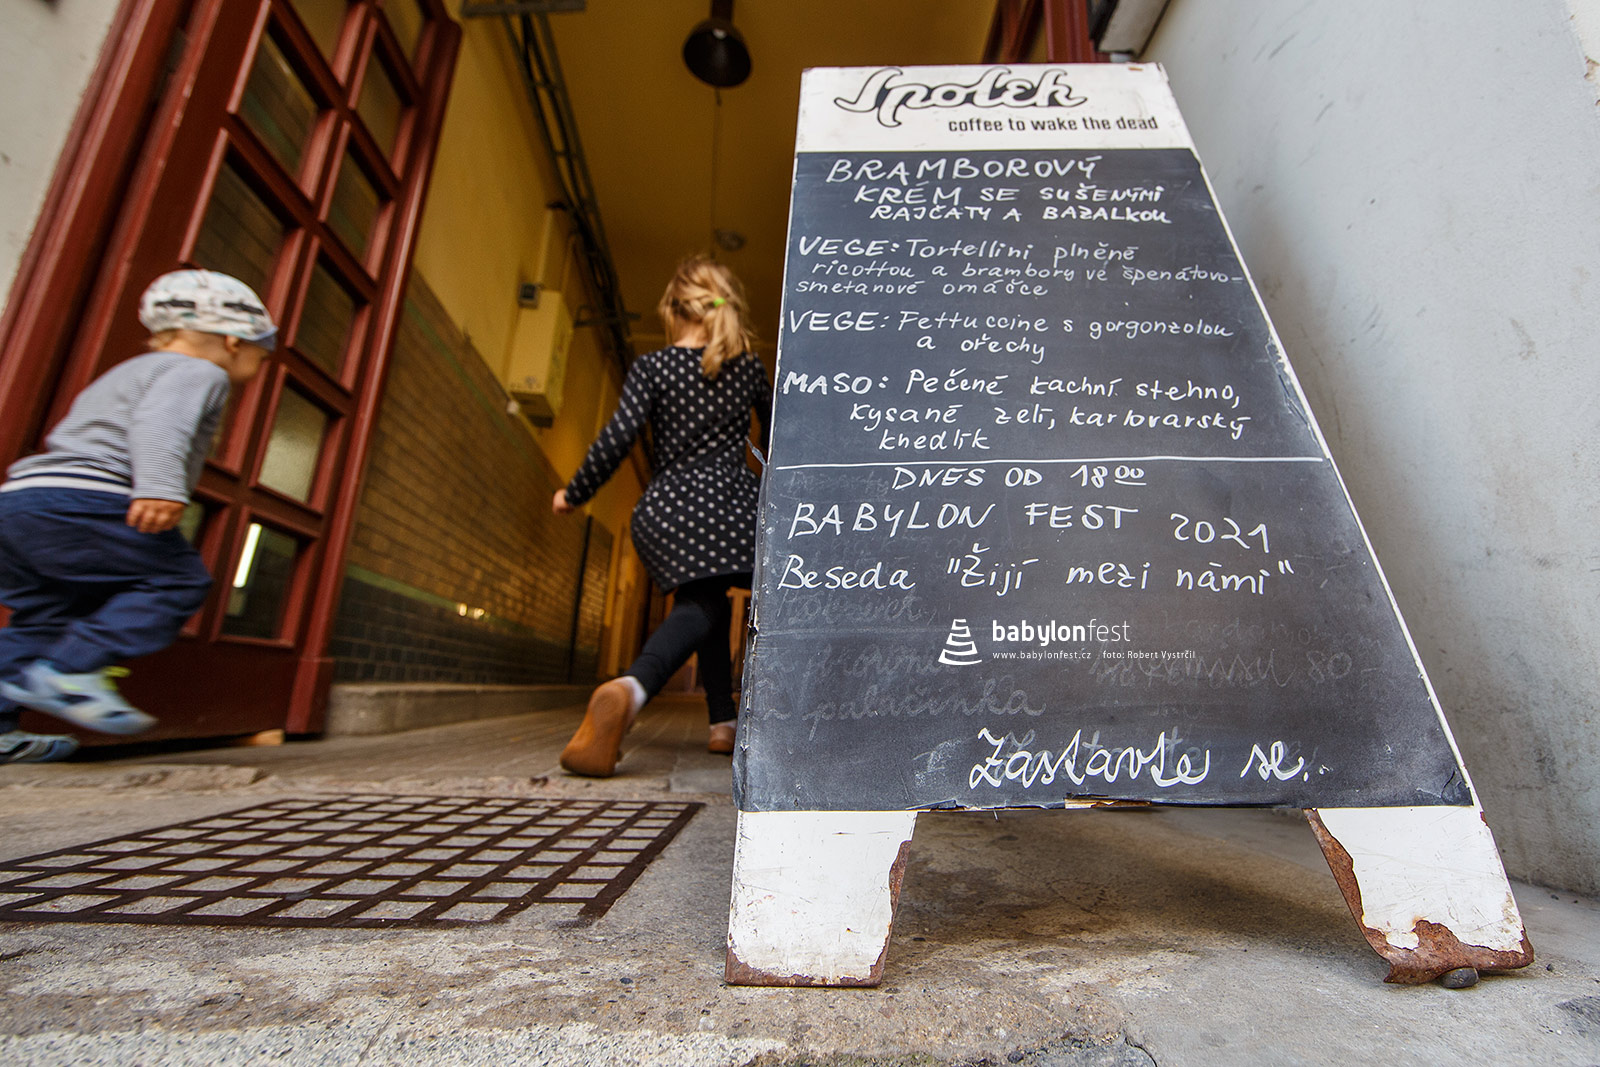 Spolek
coffee to wake the dead
BRAMBOROVÝ
KRÉM SE SUŠENÝMI
RAJČATY A BAZALKOU
VEGE: Tortellini plněné
ricottou a brambory ve špenátovo-
smetanové omáčce
VEGE: Fettuccine s gorgonzolou
a ořechy
MASO: Pečené kachní stehno,
kysané zelí, karlovarský
knedlík
DNES OD 18 00
BABYLON FEST 2021
Beseda "Žijí mezi námi"
babylonfest
www.babylonfest.cz foto: Robert Vystrčil
palačinka
Zastavte se.